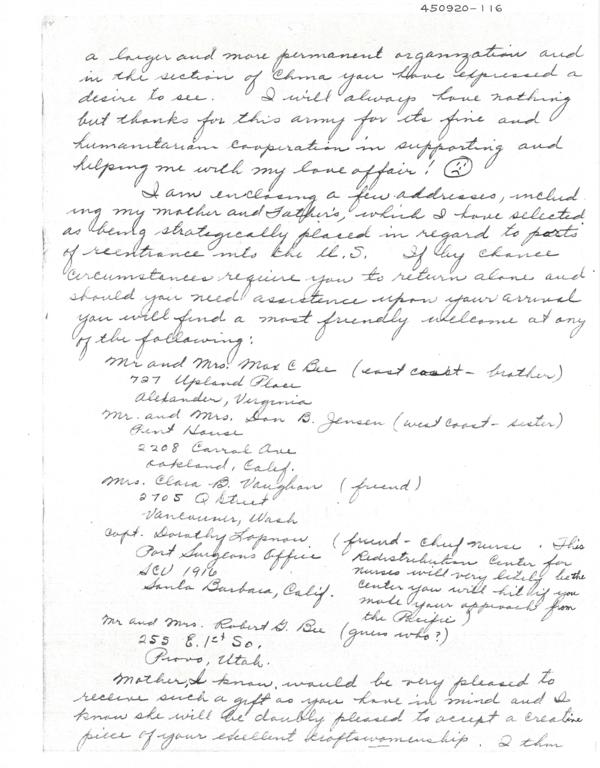 450920-116
a larger and more permanent organization and
in the section of China you have expressed a
desire to see. I will always have nothing
but thanks for this army for its fine and
humanitarian cooperation in supporting and
helping me with my love affair!
I am enclosing a few addresses, includ
ing my mother and Father's, which I have selected
as being strategically placed in regard to ports
of reentrance into the U.S. If by chance
circumstances require you to return alone and
should you need assistence upon your arrival
you will find a most friendly welcome at any
of the following:
Mr and Mrs. Max C Bee (east coast - brother)
727 Upland Place
Alexander, Virginia
Mr. and Mrs. Don B. Jensen (west coast - sister)
Pent House
2208 Carral Ave
Oakland, Calif.
Mrs. Clara B. Vaughan (friend)
2705 Q Street
Vancouver, Wash
Capt. Dorothy (friend - Chief Nurse. This
Port Surgeons Office Redistribution Center for
SCU 1916 nurses will very likely be the
Santa Barbara, Calif. center you will hit if you
made your approach from
the Pacific)
Mr and Mrs. Robert G. Bee (guess who?)
255 E. 1st So.
Provo, Utah.
Mother, I know, would be very pleased to
receive such a gift as you have in mind and I
know she will be doubly pleased to accept a creative
piece of your excellent craftswomenship. I